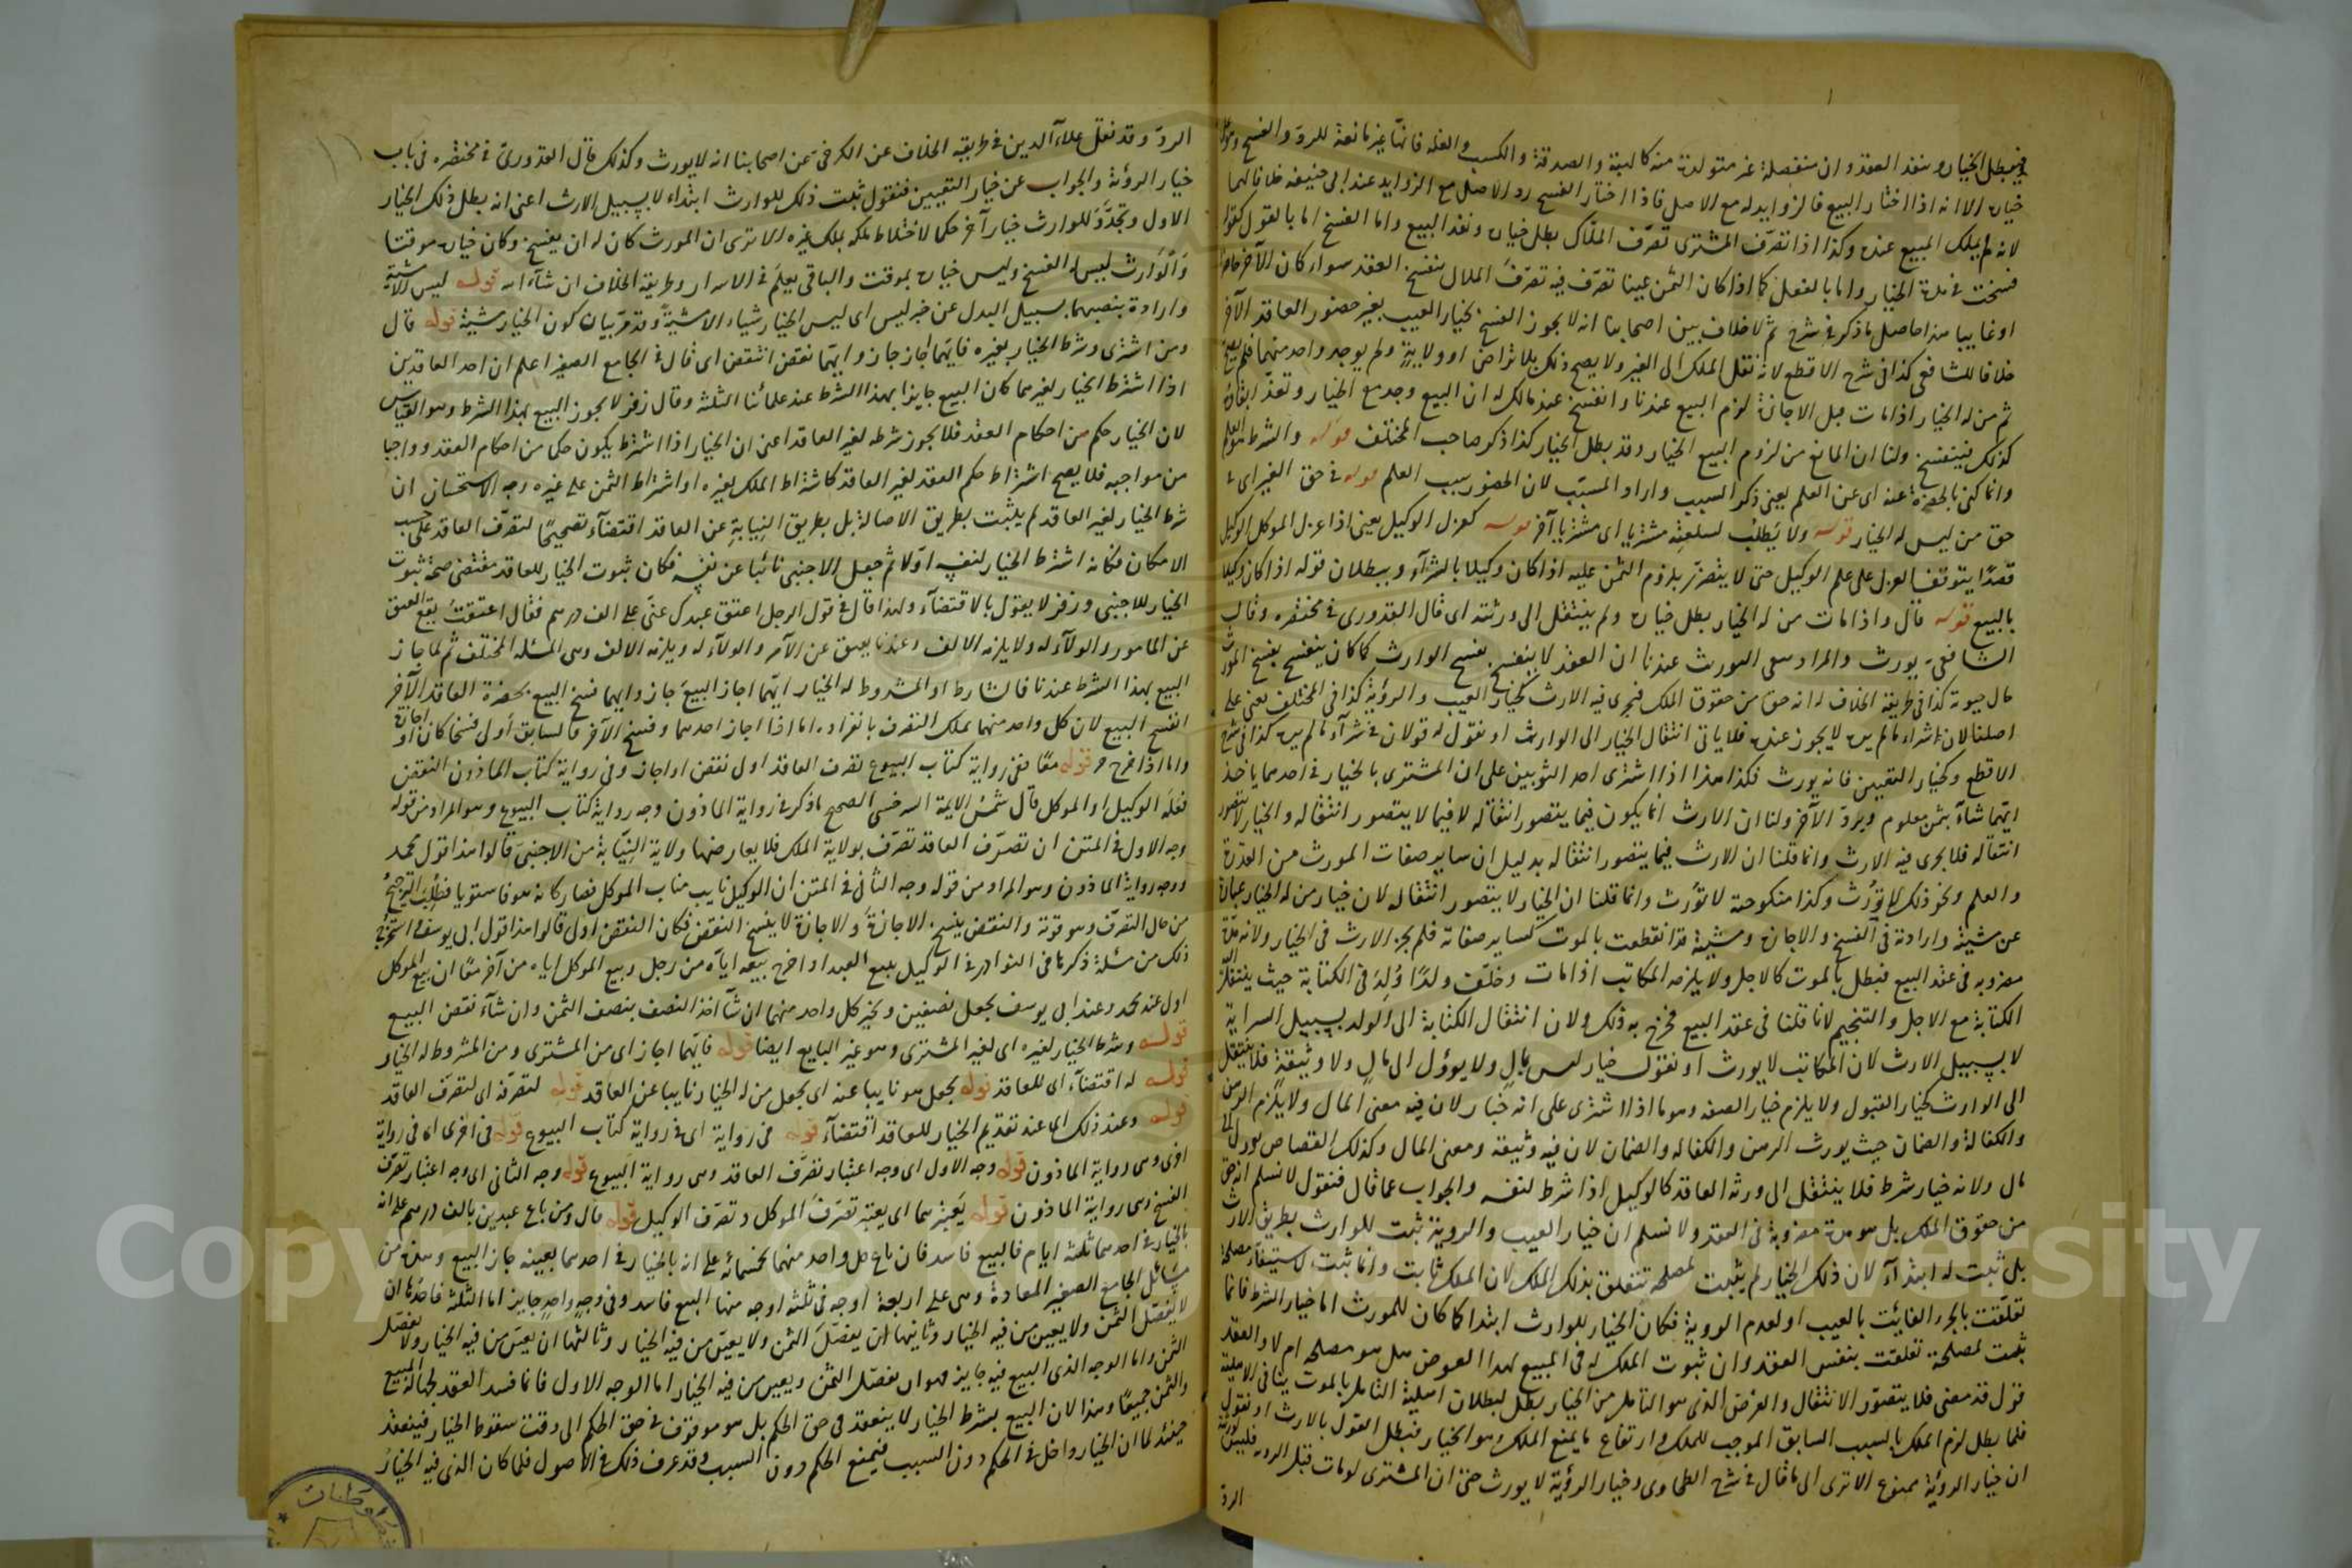 فيبطل الخيار وينفذ العقد وان منفصلة غير متولدة منه كالهبة والصدقة والكسب والغلة فانها غير مانعة للرد والفسخ وهو
خياره الا انه اذا اختار البيع فالزوايد له مع الاصل فاذا اختار الفسخ رد الاصل مع الزوايد عند ابي حنيفة خلافا لهما
لانه لم يملك المبيع عنده وكذا اذا تصرف المشترى تصرف الملاك بطل خياره ونفذ البيع واما الفسخ اما بالقول كقوله
فسخت في مدة الخيار واما بالفعل كما اذا كان الثمن عينا تصرف فيه تصرف الملاك ينفسخ العقد سواء كان الآخر حاضرا
او غايبا هذا حاصل ما ذكر في شرح ثم لا خلاف بين اصحابنا انه لا يجوز الفسخ بخيار العيب بغير حضور العاقد الآخر
خلافا للشافعي كذا في شرح الاقطع لانه نقل الملك الى الغير ولا يصح ذلك بلا تراض او ولاية ولم يوجد واحد منهما فلم يصح
ثم من له الخيار اذا مات قبل الاجازة لزم البيع عندنا وانفسخ عند مالك له ان البيع وجد مع الخيار وتعذر ابقاؤه
كذلك فينفسخ ولنا ان المانع من لزوم البيع الخيار وقد بطل الخيار كذا ذكر صاحب المختلف قوله والشرط هو العلم
وانما كنى بالحضرة عنه اى عن العلم يعنى ذكر السبب واراد المسبب لان الحضور سبب العلم قوله في حق الغير اى في
حق من ليس له الخيار قوله ولا يطلب لسلعته مشتريا اى مشتريا آخر قوله كعزل الوكيل يعنى اذا عزل الموكل الوكيل
قصدا يتوقف العزل على علم الوكيل حتى لا يتضرر بلزوم الثمن عليه اذا كان وكيلا بالشراء وببطلان قوله اذا كان وكيلا
بالبيع قوله قال واذا مات من له الخيار بطل خياره ولم ينتقل الى ورثته اى قال القدورى في مختصره وقال
الشافعي يورث والمراد من الورث عندنا ان العقد لا ينفسخ بفسخ الوارث كما كان ينفسخ بفسخ المورث
حال حيوته كذا في طريقة الخلاف له انه حق من حقوق الملك فيجرى فيه الارث كخيار العيب والرؤية كذا في المختلف يعنى على
اصلنا لان شراء ما لم يره لا يجوز عنده فلا ياتى انتقال الخيار الى الوارث او نقول له قولان في شرآء ما لم يره كذا في شرح
الاقطع وكخيار التعيين فانه يورث فكذا هذا اذا اشترى احد الثوبين على ان المشترى بالخيار في احدهما ياخذ
ايهما شآء بثمن معلوم ويرد الآخر ولنا ان الارث انما يكون فيما يتصور انتقاله لا فيما لا يتصور انتقاله والخيار لا يتصور
انتقاله فلا يجرى فيه الارث وانما قلنا ان الارث فيما يتصور انتقاله بدليل ان ساير صفات المورث من القدرة
والعلم ونحو ذلك لا تورث وكذا منكوحته لا تورث وانما قلنا ان الخيار لا يتصور انتقاله لان خيار من له الخيار عبارة
عن مشيئة وارادته في الفسخ والاجازة ومشيئة قد انقطعت بالموت كساير صفاته فلم يجز الارث في الخيار ولانه مدة
مضروبة في عقد البيع فتبطل بالموت كالاجل ولا يلزم المكاتب اذا مات وخلف ولدا ولد في الكتابة حيث ينتقل
الكتابة مع الاجل والتنجيم لانا قلنا في عقد البيع فخرج به ذلك ولان انتقال الكتابة الى الولد بسبيل السراية
لا بسبيل الارث لان المكاتب لا يورث او نقول خيار ليس بمال ولا يؤول الى مال ولا وثيقة فلا ينتقل
الى الوارث كخيار القبول ولا يلزم خيار الصفة وهو ما اذا اشترى على انه خباز لان فيه معنى المال ولا يلزم الرهن
والكفالة والضمان حيث يورث الرهن والكفالة والضمان لان فيه وثيقة ومعنى المال وكذلك القصاص يؤول الى
مال ولانه خيار شرط فلا ينتقل الى ورثة العاقد كالوكيل اذا شرط لنفسه والجواب عما قال فنقول لا نسلم انه حق
من حقوق الملك بل هو مدة مضروبة في العقد ولا نسلم ان خيار العيب والروية ثبت للوارث بطريق الارث
بل ثبت له ابتدآء لان ذلك الخيار لم يثبت لمصلحة تتعلق بذلك الملك لان الملك ثابت وانما ثبت لاستيفاء مصلحة
تعلقت بالجزء الفائت بالعيب او لعدم الروية فكان الخيار للوارث ابتدا كما كان للمورث اما خيار الشرط فانما
ثبت لمصلحة تعلقت بنفس العقد وان ثبوت الملك له في المبيع بهذا العوض هل هو مصلحة ام لا والعقد
قول قد مضى فلا يتصور الانتقال والغرض الذى هو التامل من الخيار بطل لبطلان اهلية التامل بالموت ينافى الاهلية
فلما بطل لزم الملك بالسبب السابق الموجب للملك وارتفاع ما يمنع الملك وهو الخيار فبطل القول بالارث او نقول
ان خيار الرؤية ممنوع الا ترى الى ما قال في شرح الطحاوى وخيار الرؤية لا يورث حتى ان المشترى لو مات قبل الروية فليس لورثته
الرد
الرد وقد نقل علاء الدين في طريقة الخلاف عن الكرخي عن اصحابنا انه لا يورث وكذلك قال القدورى في مختصره في باب
خيار الرؤية والجواب عن خيار التعيين فنقول ثبت ذلك للوارث ابتداء لا بسبيل الارث اعنى انه بطل ذلك الخيار
الاول وتجدد للوارث خيار آخر حكما لاختلاط ملكه بملك غيره الا ترى ان المورث كان له ان يفسخ وكان خياره موقتا
والوارث ليس له الفسخ وليس خياره بموقت والباقى يعلم في الاسرار وطريقة الخلاف ان شاء الله قوله ليس الا مشية
وارادة بنصبهما بسبيل البدل عن خبر ليس اى ليس الخيار شياء الا مشية وقد مر بيان كون الخيار مشية قوله قال
ومن اشترى وشرط الخيار لغيره فايهما اجاز جاز وايهما نقض انتقض اى قال في الجامع الصغير اعلم ان احد العاقدين
اذا اشترط الخيار لغيرهما كان البيع جايزا بهذا الشرط عند علمائنا الثلثة وقال زفر لا يجوز البيع بهذا الشرط وهو القياس
لان الخيار حكم من احكام العقد فلا يجوز شرطه لغير العاقد اعنى ان الخيار اذا اشترط يكون حكما من احكام العقد وواجبا
من مواجبه فلا يصح اشتراط حكم العقد لغير العاقد كاشتراط الملك لغيره او اشتراط الثمن على غيره وجه الاستحسان ان
شرط الخيار لغير العاقد لم يثبت بطريق الاصالة بل بطريق النيابة عن العاقد اقتضآء تصحيحا لتصرف العاقد على حسب
الامكان فكانه اشترط الخيار لنفسه اولا ثم جعل الاجنبى نائبا عن نفسه فكان ثبوت الخيار للعاقد مقتضى صحة ثبوت
الخيار للاجنبى وزفر لا يقول بالاقتضآء ولهذا قال في قول الرجل اعتق عبدك عنى على الف درهم فقال اعتقت يقع العتق
عن المامور والولآء له ولا يلزمه الالف وعندنا يعتق عن الآمر والولآء له ويلزمه الالف وهى المسئلة المختلف ثم لما جاز
البيع بهذا الشرط عندنا فالشارط او المشروط له الخيار ايهما اجاز البيع جاز وايهما فسخ البيع بحضرة العاقد الآخر
انفسخ البيع لان كل واحد منهما يملك التصرف بانفراده اما اذا اجاز احدهما وفسخ الآخر فالسابق اولى فسخا كان او اجازة
واما اذا خرج قوله معا ففى رواية كتاب البيوع تصرف العاقد اولى نقض او اجاز وفى رواية كتاب الماذون النقض
فعله الوكيل او الموكل قال شمس الايمة السرخسى الصحيح ما ذكر في رواية الماذون وجه رواية كتاب البيوع وهو المراد من قوله
وجه الاول في المتن ان تصرف العاقد تصرف بولاية الملك فلا يعارضها ولاية النيابة من الاجنبى قالوا هذا قول محمد
ووجه رواية الماذون وهو المراد من قوله وجه الثانى في المتن ان الوكيل نايب مناب الموكل فصار كانه هو فاستويا فطلب الترجيح
من حال التصرف وهو قوته والنقض يفسخ الاجازة والاجازة لا يفسخ النقض فكان النقض اولى قالوا هذا قول ابى يوسف استخرج
ذلك من مسئلة ذكرها في النوادر في الوكيل ببيع العبد اذا خرج بيعه اياه من رجل وبيع الموكل اياه من آخر معا ان بيع الموكل
اولى عند محمد وعند ابى يوسف يجعل نصفين ويخير كل واحد منهما ان شآ اخذ النصف بنصف الثمن وان شآء نقض البيع
قوله وشرط الخيار لغيره اى لغير المشترى وهو غير البايع ايضا قوله فايهما اجاز اى من المشترى ومن المشروط له الخيار
قوله له اقتضآء اى للعاقد قوله يجعل هو نايبا عنه اى يجعل من له الخيار نايبا عن العاقد قوله لتصرفه اى لتصرف العاقد
قوله وعند ذلك اى عند تقديم الخيار للعاقد اقتضآء قوله في رواية اى في رواية كتاب البيوع قوله في اخرى اى في رواية
اخرى وهى رواية الماذون قوله وجه الاول اى وجه اعتبار تصرف العاقد وهى رواية البيوع قوله وجه الثانى اى وجه اعتبار تصرف
الفسخ وهى رواية الماذون قوله يعتبرهما اى يعتبر تصرف الموكل وتصرف الوكيل قوله قال ومن باع عبدين بالف درهم على انه
بالخيار في احدهما ثلثة ايام فالبيع فاسد فان باع كل واحد منهما بخمسمائة على انه بالخيار في احدهما بعينه جاز البيع وهذه من
مسائل الجامع الصغير المعادة وهى على اربعة اوجه في ثلثة اوجه منها البيع فاسد وفى وجه واحد جايز اما الثلثة فاحدها ان
لا يفصل الثمن ولا يعين من فيه الخيار وثانيها ان يفصل الثمن ولا يعين من فيه الخيار وثالثها ان يعين من فيه الخيار ولا يفصل
الثمن واما الوجه الذى البيع فيه جايز فهو ان يفصل الثمن ويعين من فيه الخيار اما الوجه الاول فانما فسد العقد لجهالة المبيع
والثمن جميعا وهذا لان البيع بشرط الخيار لا ينعقد في حق الحكم بل هو موقوف في حق الحكم الى وقت سقوط الخيار فينعقد
حينئذ لما ان الخيار داخل في الحكم دون السبب فيمنع الحكم دون السبب وقد عرف ذلك في الاصول فلما كان الذى فيه الخيار